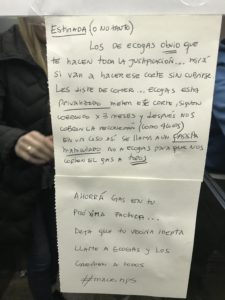 ESTIMADA (O NO TANTO)
LOS DE ECOGAS OBVIO QUE
TE HACEN TODA LA JUSTIFICACIÓN...
SI VAN A HACER ESE CORTE SIN
LES DISTE DE COMER... ECOGAS ESTA
PRIVATIZADO METEN ESTE CORTE, SIGUEN
COBRANDO X 3 MESES Y DESPUÉS NOS
COBRAN LA RECONEXIÓN (COMO 4000$)
EN UN CASO ASÍ SE LLAMA A UN GASISTA
MATRICULADO NO A ECOGAS PARA QUE NOS
CORTEN EL GAS A TODOS
AHORRÁ GAS EN TU
PRÓXIMA FACTURA...
DEJA QUE TU VECINA INEPTA
LLAME A ECOGAS Y LOS
CAGUEN A TODOS